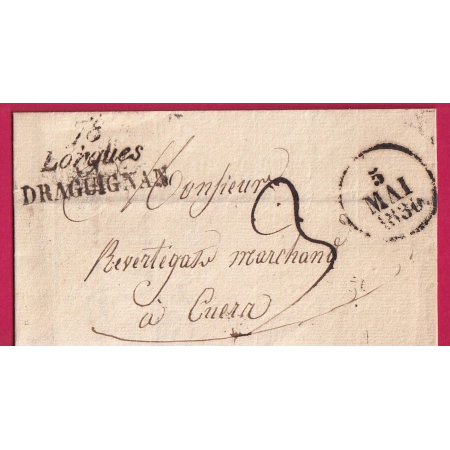 78
Lorgues
DRAGUIGNAN
5
MAI
1830
Monsieur
Revertégat marchand
à Cuers
3